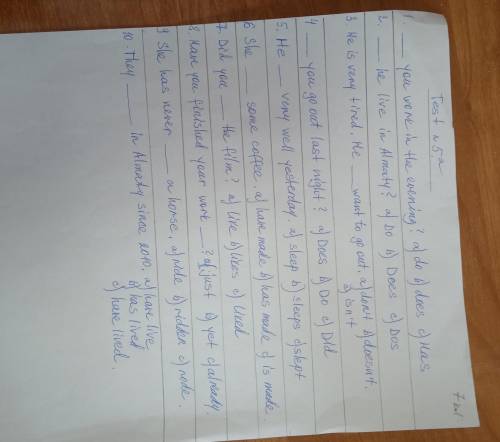 7 ю
Test n 5-a
1. __ you work in the evening? a) do b) does c) Has
2. __ he live in Almaty? a) Do b) Does c) Dos
3. He is very tired. He __ want to go out. a) don't b) doesn't.
c) isn't
4 __ you go out last night? a) Does b) Do c) Did
5. He __ very well yesterday. a) sleep b) sleeps c) slept
6 She __ some coffee. a) have made b) has made c) is made
7. Did you __ the film? a) like b) likes c) liked
8. Have you finished your work __? a) just b) yet c) already.
9 She has never __ a horse. a) rode b) ridden c) rode.
10. They __ in Almaty since 2010. a) have live
b) has lived
c) have lived.